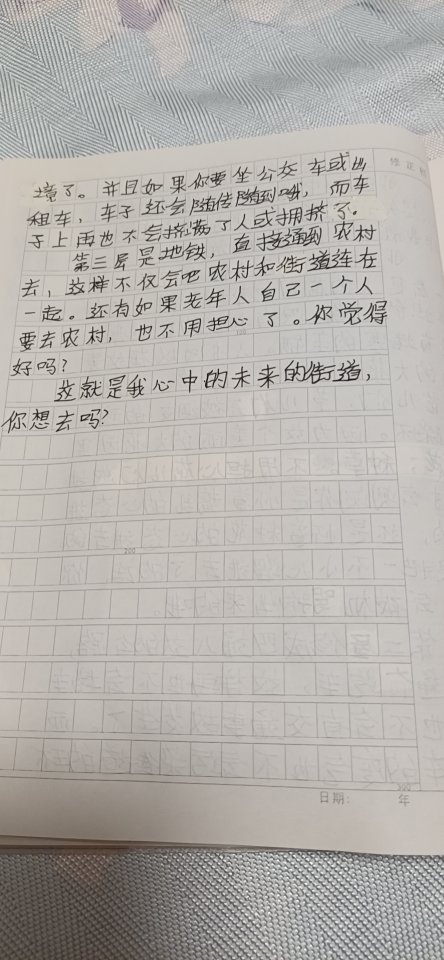 境了。并且如果你要坐公交车或出
租车，车子还会随传随到哦，而车
子上再也不会挤满了人或拥挤了。
第三层是地铁，直接通到农村
去，这样不仅会吧农村和街道连在
一起。还有如果老年人自己一个人
要去农村，也不用担心了。你觉得
好吗？
这就是我心中的未来的街道，
你想去吗？
200
300
日期： 年